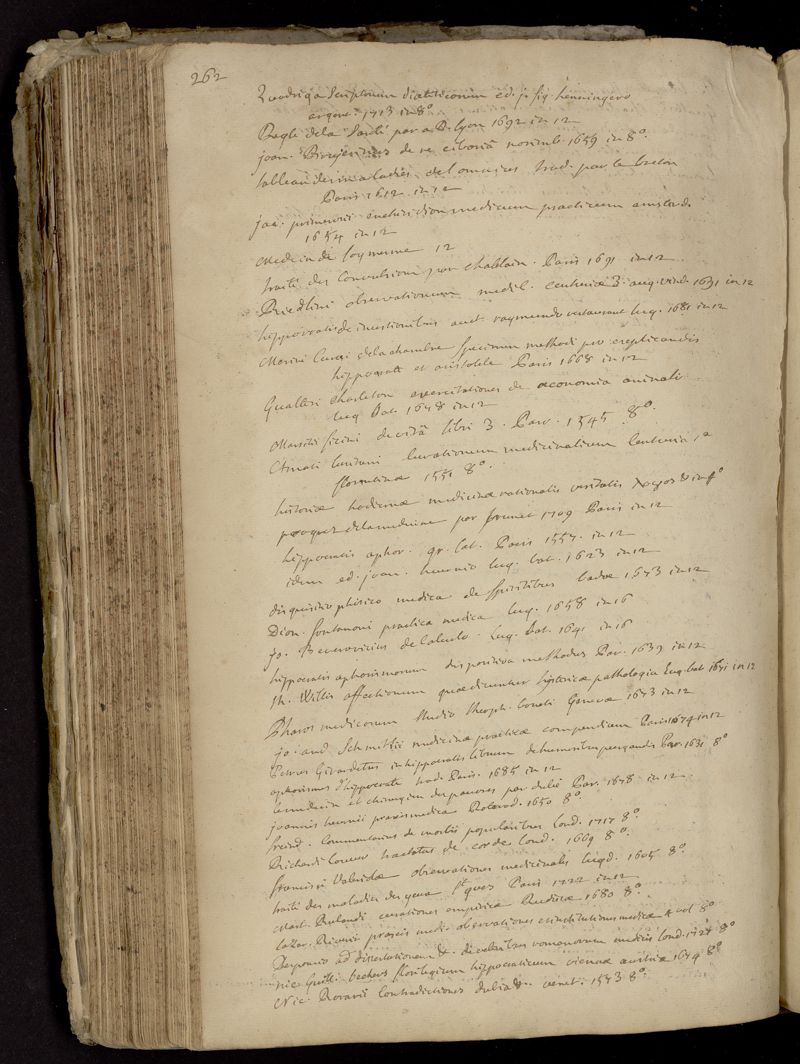 262
Quadriga Scriptorum diæteticorum ed. jo. sig. henningero
argent. 1713 in 8°
Regle de la Santé par a D. lyon 1692 in 12
joan. Bruyerinus de re cibaria norimb. 1659 in 8°.
tableau des maladies de lomaius trad. par le breton
Paris 1612 in 12
jac. primerosii enchiridion medicum practicum amstero.
1654 in 12
Medecin de soy mesme 12
traité des Convulsions par chastain. Paris 1691 in 12
Friedlini observationum medic. centuriæ 3. aug. vind. 1691 in 12
hippocratis de inventionibus auct. raymundo lug. 1681 in 12
Marini Curæi de la chambre specimen methodi pro explicandis
hippocrate et aristotele Paris 1668 in 12
Gualteri charleton exercitationes de œconomia animali
lug. Bat. 1678 in 12
Marsilii ficini de vitâ libri 3. Par. 1545 8°.
Amati lusitani curationum medicinalium centuria 1a
florentinæ 1551 8°.
historiæ hodiernæ medicinæ rationalis veritatis
progrez de la medecine par brunet 1709 Paris in 12
hippocratis aphor. gr. lat. Paris 1557. in 12
idem ed. joan. heurnio lug. bat. 1623 in 12
disquisitio phisico medica de spiritibus 1673 in 12
Dion. fontanoni practica medica lug. 1658 in 16
jo. Beverovicius de Calculo. Lug. Bat. 1641 in 16
hippocratis aphorismorum dispositiva methodus Par. 1639 in 12
th. Willis affectionum quæ dicuntur hystericæ pathologia Lug. bat 1671 in 12
Pharos medicorum studio theoph. boneti Genevæ 1673 in 12
jo. and. Schmitzii medicinæ practicæ compendium Paris 1674 in 12
Petrus Girardetus in hippocratis librum de humoribus purgandis Par. 1631 8°
aphorismes d'hippocrate trad. Paris. 1685 in 12
le medecin et chirurgien des pauvres par dubé Par. 1678 in 12
joannis heurnii praxis medica Roterod. 1650 8°
freind. Commentarius de morbis popularibus Lond. 1717 8°.
Richardi lower tractatus de corde lond. 1669 8°.
francisci Valeriolæ observationes medicinales lugd. 1605 8°.
traité des maladies des yeux st yves Paris 1722 in 12
Mart. Rulandi curationes empiricæ Budisæ 1680 8°.
Lazar. Riverii praxis medic observationes et institutiones medicæ 4 vol 8°
Responsio ad dissertationem &. de vomonorum medicis lond. 1727 8°
nic Guill. beckers florilegium hippocraticum viennæ austriæ 1674 8°
Nic. Rorarii Contradictiones dubia &. venet. 1573 8°.